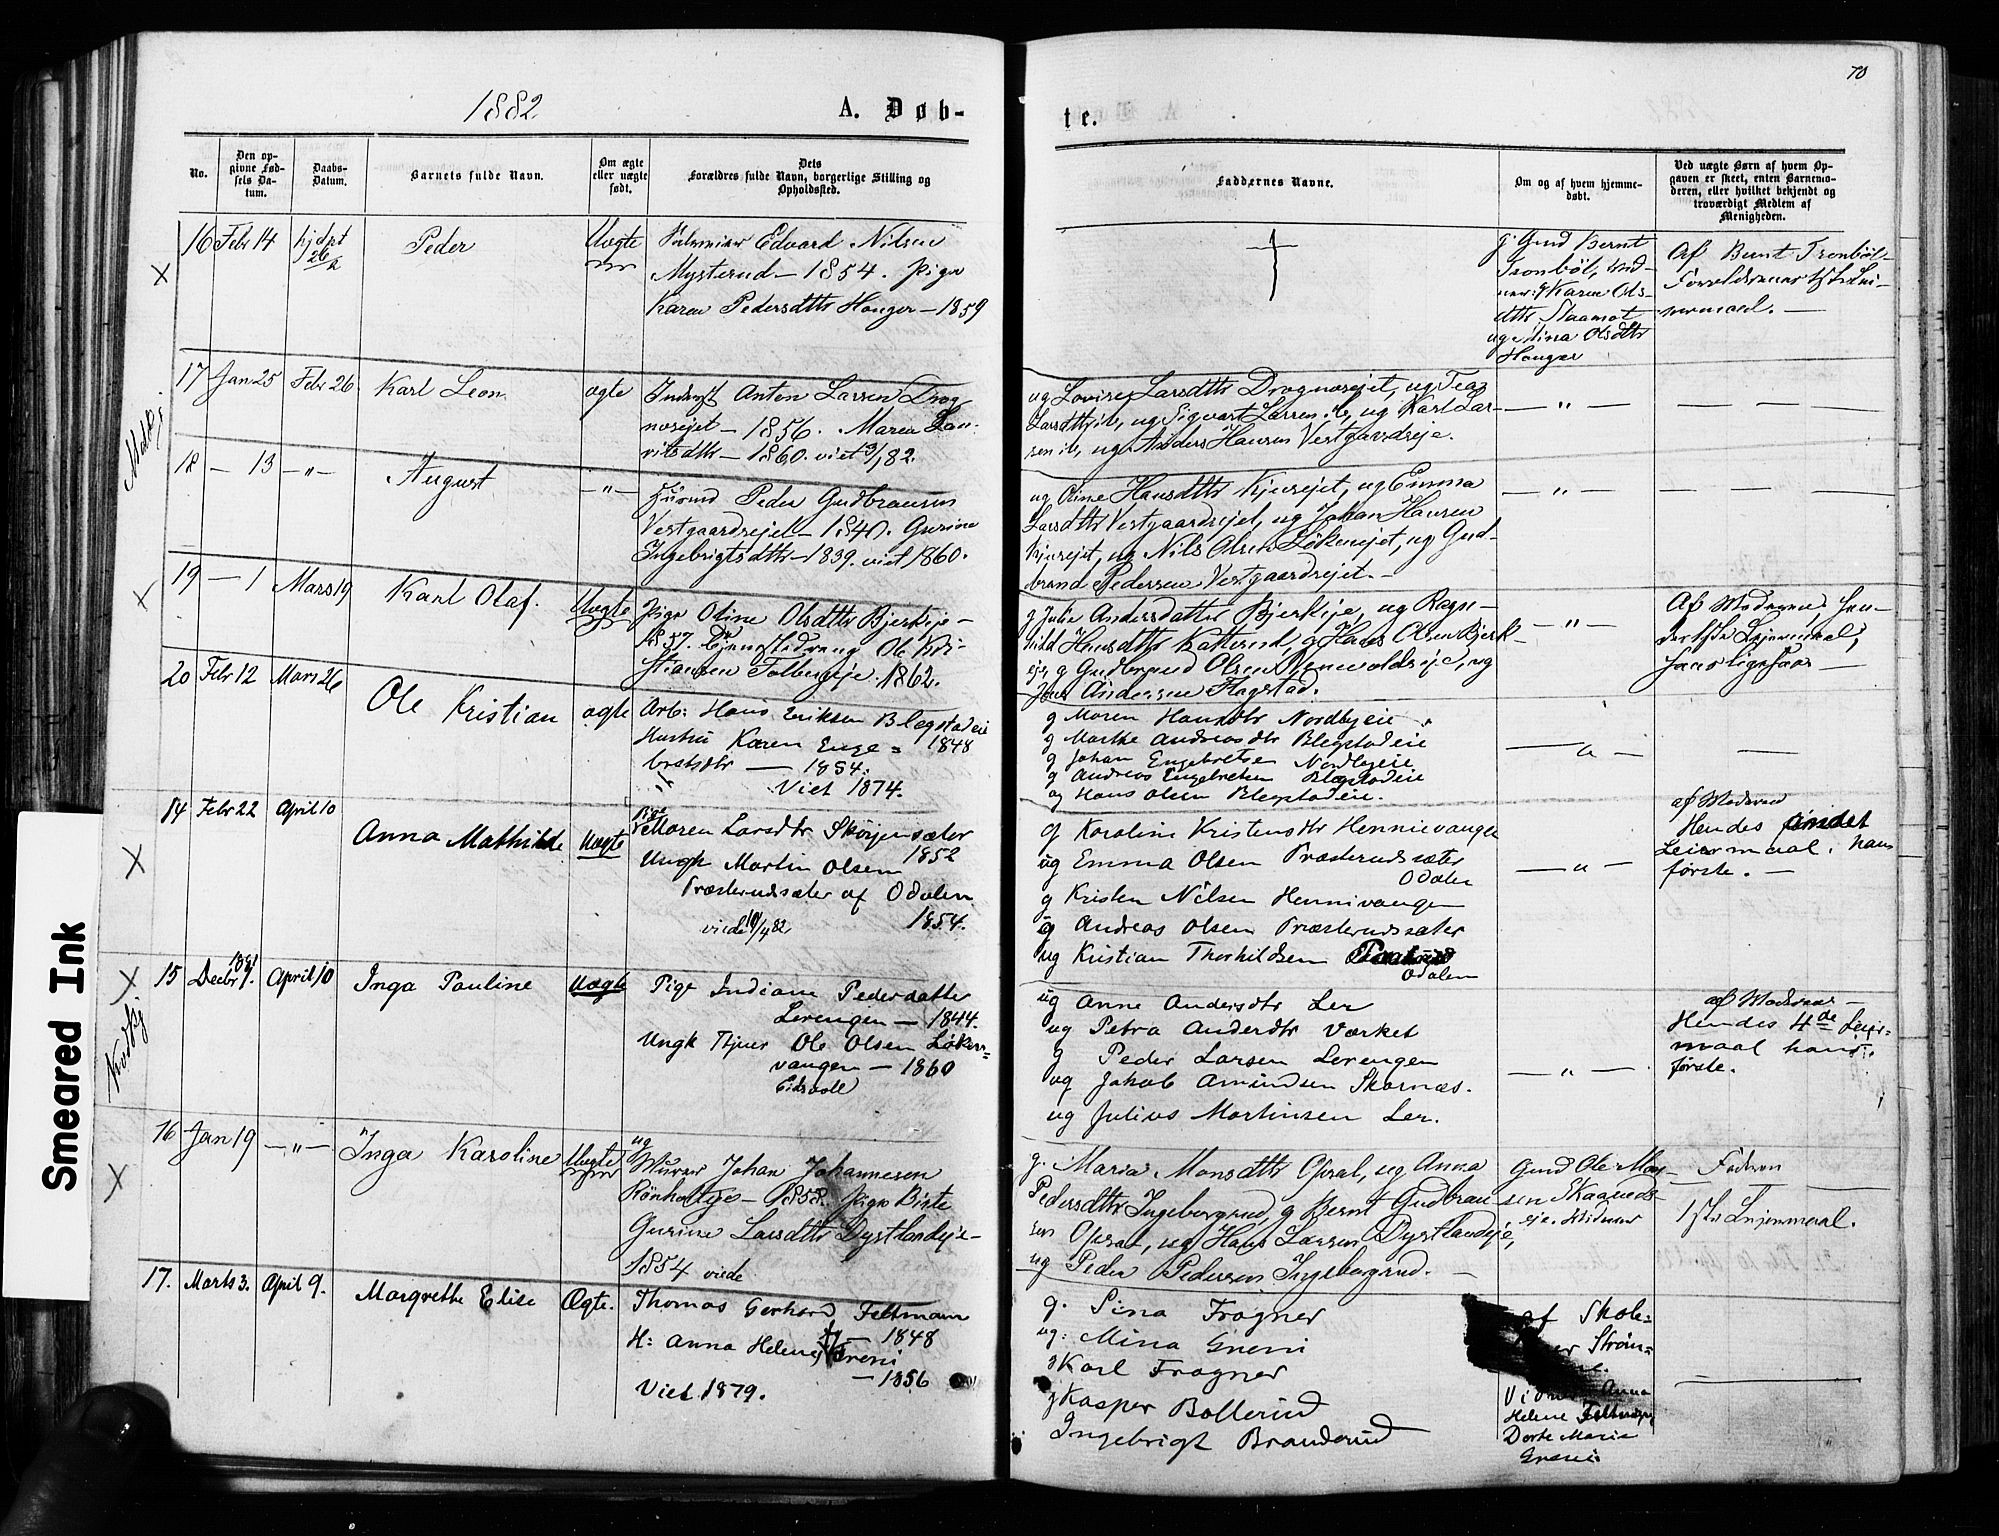 70
1882.
A. Døb-
te.
No.
Den op-
givne Fød-
sels Da-
tum.
Daabs-
Datum.
Barnets fulde Navn.
Om ægte
eller uægte
født.
Dets
Forældres fulde Navn, borgerlige Stilling og
Opholdssted.
Faddernes Navne.
Om og af hvem hjemme-
døbt.
Ved uægte Børn af hvem Op-
gaven er skeet, enten Barnemo-
deren, eller hvilket bekjendt og
troværdigt Medlem af
Menigheden.
16 Febr 14 hjdpt
26/2
Peder
Uægte
Edvard Nilsen
Mysterud - 1854. Pige
Karen Pedersdtr Honger - 1859
†
Gmd Bernt
Tronböl,
Karen Ols-
dtr
og Stina Olsdtr
Honger
Af Bernt Tronböl
17 Jan 25 Febr 26 Karl Leon ægte
Inderst Anton Larsen Drog-
nesejet - 1856. Maren Lau-
ritsdtr - 1860. viet 3/1 82.
ug Lovise Larsdtr Drognesejet, ug Tea
Larsdtr ib, ug Sigvart Larsen ib, ug Karl Lar-
sen ib, ug Anders Hansen Vestgaardseje.
— " —
— — —
18 — 13 — " — August — " —
Husmd Peder Gudbransen
Vestgaardsejet - 1840. Gurine
Ingebrigtsdtr - 1839. viet 1860.
ug Oline Hansdtr Kjusejet, ug Emma
Larsdtr Vestgaardsejet, ug Johan Hansen
Kjusejet, ug Nils Olsen Løkensejet, ug Gud-
brand Pedersen Vestgaardsejet. -
— " —
— — —
19 — 1 Mars 19 Karl Olaf. Uægte
Pige Oline Olsdtr Bjerkeje -
1857. Tjenestedreng Ole Kri-
stiansen Tolbergeje. 1862.
g Julie Andersdatter Bjerkeje, ug Ragn-
hild Hansdtr Katterud, g Hans Olsen Bjerk-
eje, g Gudbrand Olsen Venvoldseje, ug
Jens Andersen Flagstad.
— " —
Af Moderen; hen-
des 1ste Lejermaal;
hans ligesaa —
20 Febr 12 Mars 26 Ole Kristian ægte
Arb: Hans Eriksen Blegstadeie
Hustru Karen Enge = 1848
bretsdtr — 1854.
Viet 1874.
g Maren Hansdtr Nordbyeie
g Marthe Andreasdtr Blegstadeie
g Johan Engebretsen Nordbyeie
g Andreas Engebretsen Blegstadeie
og Hans Olsen Blegstadeie.
— " —
—
14 Febr 22 April 10
Anna Mathilde Uægte
Pige
Maren Larsdtr Skørjensæter
1852
Ungk Martin Olsen
Præsterudsæter af Odalen
1854.
viede 10/4 82
g Karoline Kristensdtr Hennievangen
ug Emma Olsen Præsterudsæter
Odalen
g Kristen Nilsen Hennivangen
ug Andreas Olsen Præsterudsæter
ug Kristian Thorkildsen
Odalen
— " —
af Moderen
Hendes andet
Leiermaal, hans
første. —
15 1881
Decbr 9. April 10 Inga Pauline Uægte
Pige Indiane Pedersdatter
Lerengen — 1844.
Ungk Tjener Ole Olsen Løken-
vangen — 1860
Eidsvold
ug Anne Andersdtr Ler
ug Petra Andersdtr Værket
g Peder Larsen Lerengen
ug Jakob Amundsen Skarnæs.
ug Julius Martinsen Ler.
— " —
af Moderen —
Hendes 4de Leier-
maal hans
første.
16 Jan 19 — " — Inga Karoline Uægte
ug
Murer Johan Johannesen
Rönholteje - 1858. Pige Birte
Gurine Larsdtr Dystlandeje -
1854 viede
g. Maria Monsdtr Opsal, ug Anna
Pedersdtr Ingeborgrud, g Bernt Gudbran-
sen Opsal, ug Hans Larsen Dystlandeje,
ug Peder Pedersen Ingeborgrud. —
Gmd Ole
Faderen
1ste Lejermaal.
17. Marts 3. April 9. Margrethe Elise Ægte.
Thomas Gerhard Feltmann
— 1848
H: Anna Helene Greni
— 1856
Viet 1879.
g. Sina Frogner
ug: Mina Greni
g Karl Frogner
g Kasper Bollerud
Ingebrigt Branderud
af Skole=
Strøm=
Anna
Helene Feltmann
Dorte Maria
Greni
—
Smeared Ink